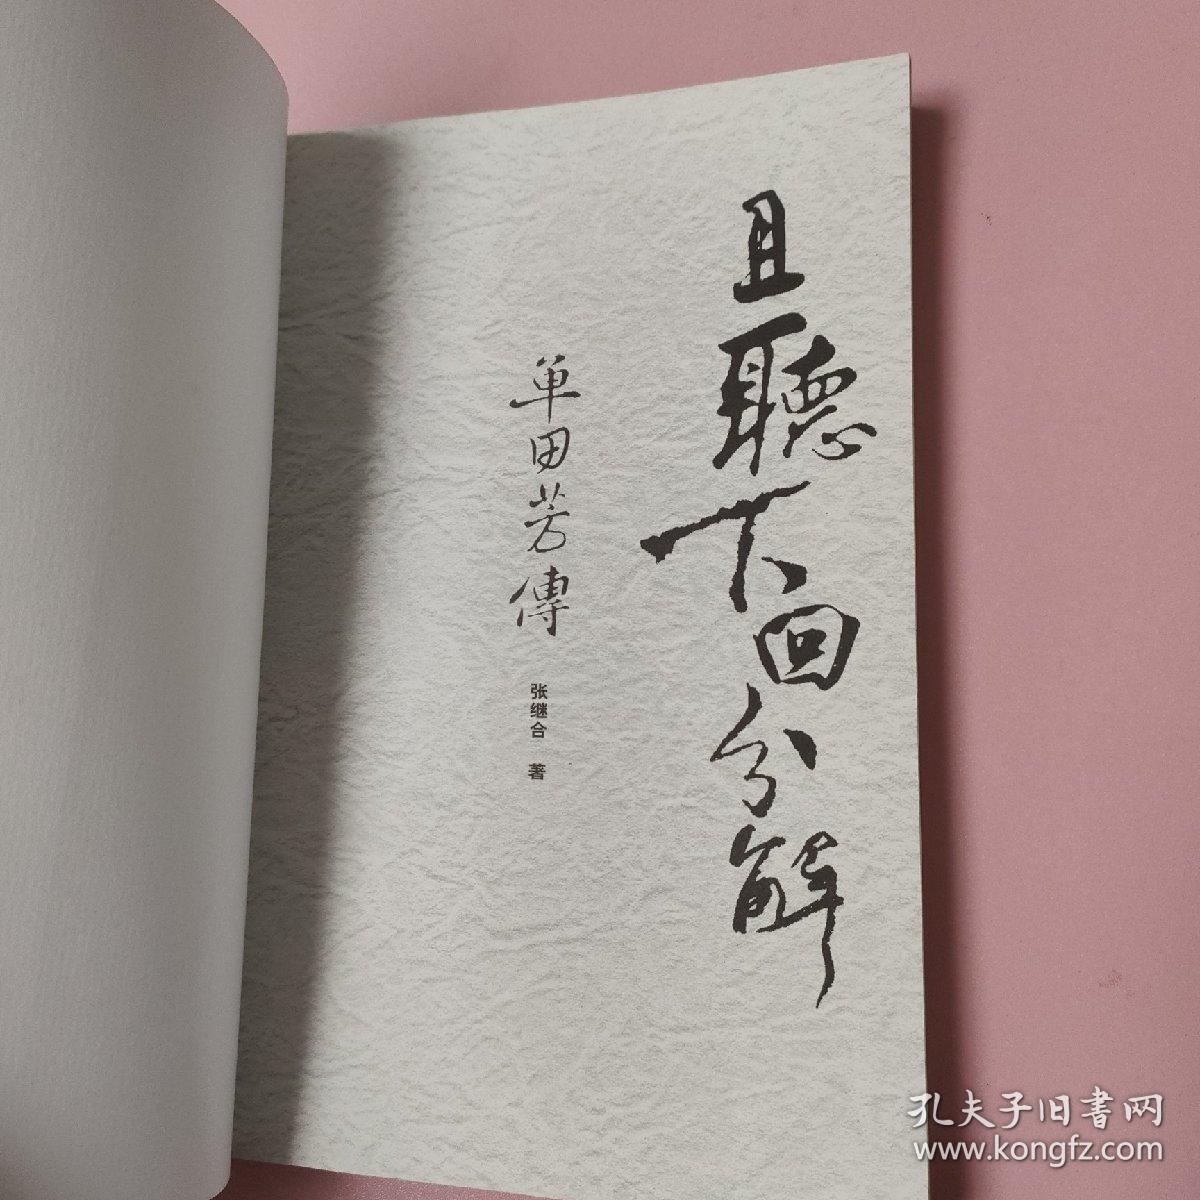 且聽下回分解
单田芳傳
张继合 著
孔夫子旧書网
www.kongfz.com